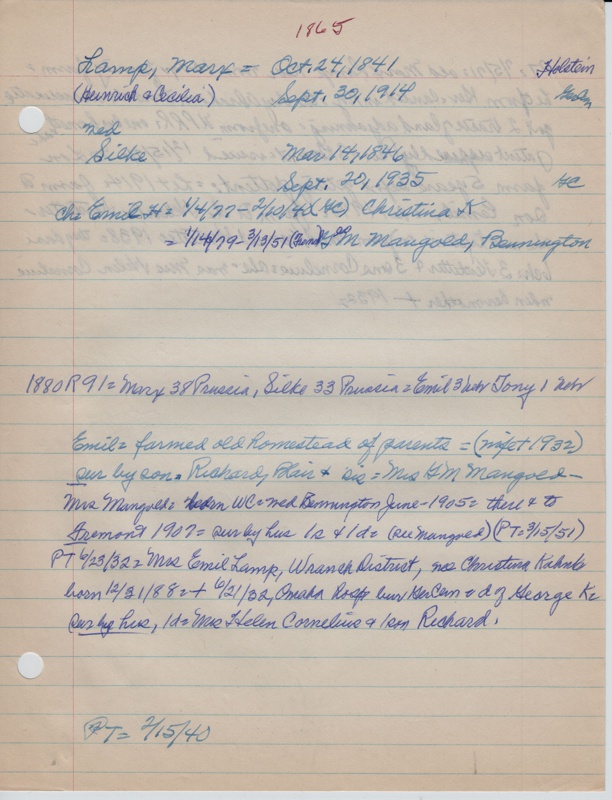 1865
Lamp, Marx = Oct. 24, 1841 Holstein
(Heinrich & Cecilia) Sept. 30, 1914
med
Silke Mar 14, 1846
Sept. 20, 1935
Ch: Emil H = 1/4/77 - Christina K
= 1/14/79 - 3/13/51 M Mangold, Bennington
1880 R 91 = Marx 38 Prussia, Silke 33 Prussia = Emil 3 Neb Tony 1 Neb
Emil = farmed old homestead of parents = (wife + 1932)
sur by son = Richard, Blair + sis = Mrs G M Mangold -
Mrs Mangold = born WC = med Bennington June - 1905 = there & to
Fremont 1907 = sur by hus 1s & 1d = (see Mangold) (PT = 3/15/51)
PT 6/23/32 = Mrs Emil Lamp, District, nee Christina
born 12/31/88 = + 6/21/32, Omaha Hosp bur Cem = d of George K =
sur by hus, 1d = Mrs Helen Cornelius & 1 son Richard.
PT = 2/15/40